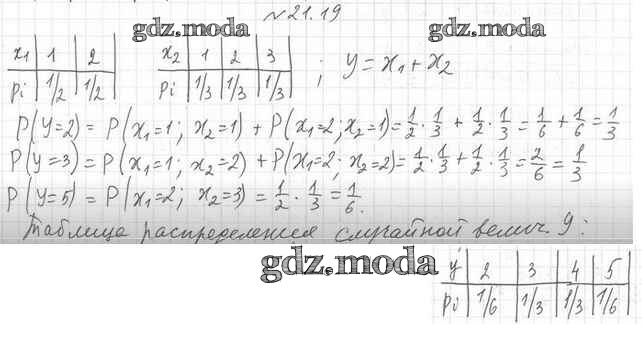 №21.19
gdz.moda gdz.moda
x₁ | 1 | 2
pi | 1/2 | 1/2
x₂ | 1 | 2 | 3
pi | 1/3 | 1/3 | 1/3
; y = x₁ + x₂
P(y=2) = P(x₁=1; x₂=1) + P(x₁=2; x₂=1) = 1/2 · 1/3 + 1/2 · 1/3 = 1/6 + 1/6 = 1/3
P(y=3) = P(x₁=1; x₂=2) + P(x₁=2; x₂=2) = 1/2 · 1/3 + 1/2 · 1/3 = 2/6 = 1/3
P(y=5) = P(x₁=2; x₂=3) = 1/2 · 1/3 = 1/6.
Таблица распределения случайной велич. y:
gdz.moda
y | 2 | 3 | 4 | 5
pi | 1/6 | 1/3 | 1/3 | 1/6